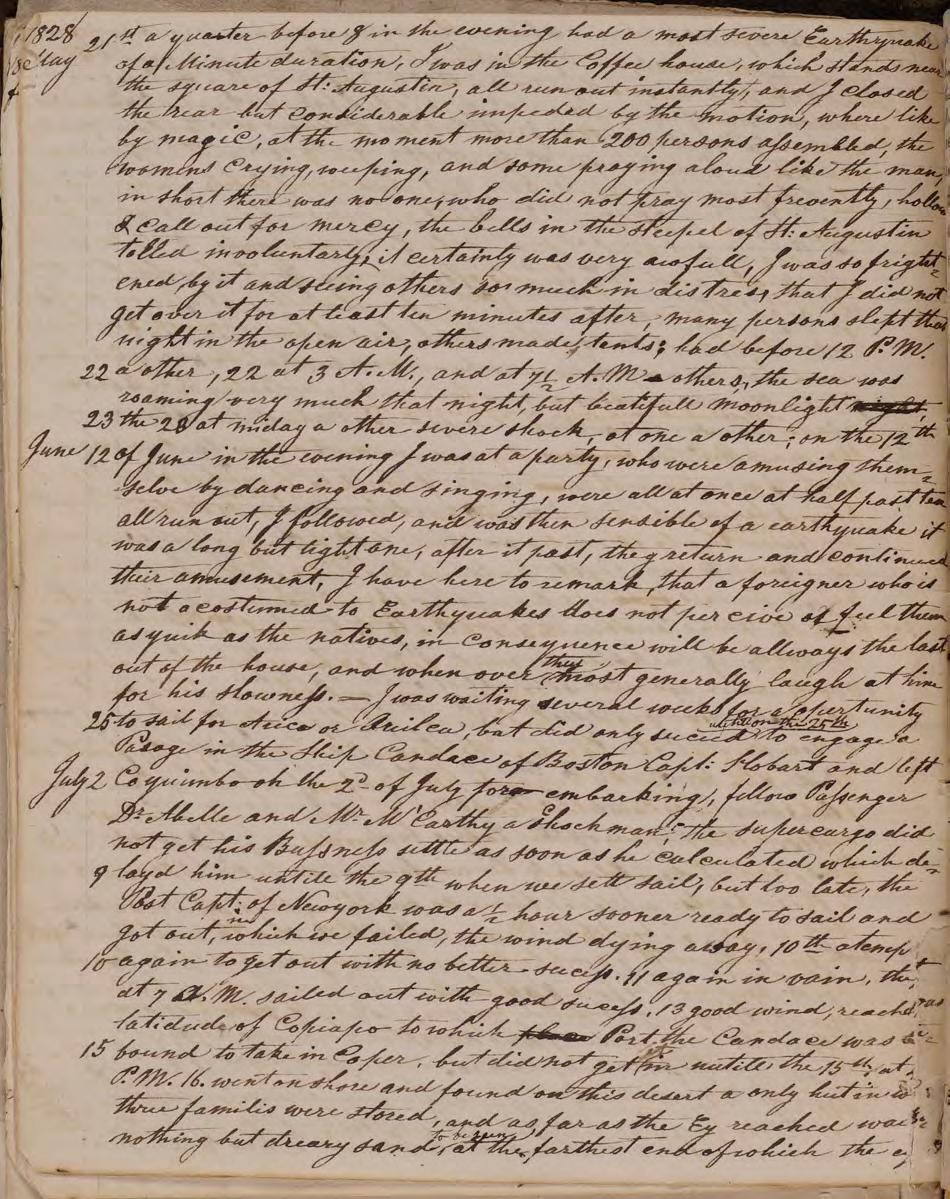 1828
May 21st a quarter before 8 in the evening had a most severe Earthquake
of a Minute duration, I was in the Coffee house, which stands near
the square of St: Augustin, all run out instantly, and I closed
the rear but considerable impeded by the motion, where like
by magic, at the moment more than 200 persons assembled, the
womens crying, weeping, and some praying aloud like the man,
in short there was no one, who did not pray most frevently, hollow
& call out for mercy, the bells in the steepel of St: Augustin
tolled involuntary, it certainly was very awfull, I was so fright=
ened by it and seeing others so much in distress, that I did not
get over it for at least ten minutes after, many persons slept that
night in the open air, others made tents; had before 12 P.M.
22 a other, 22 at 3 A.M., and at 7½ A.M. others, the sea was
roaming very much that night, but beatifull moonlight night.
23 the 23 at miday a other severe shock, at one a other; on the 12th
June 12 of June in the evening I was at a party, who were amusing them=
selve by dancing and singing, were all at once at half past ten
all run out, I followed, and was then sensible of a earthquake it
was a long but light one, after it past, they return and continued
their amusement, I have here to remark, that a foreigner who is
not acostumed to Earthquakes does not percive or feel them
as quik as the natives, in consequence will be allways the last
out of the house, and when over they most generally laugh at him
for his slowness. — I was waiting several weeks for a opertunity
25 to sail for Arica or Quilca, but did only suceed until on the 25th to engage a
Pasage in the Ship Candace of Boston Capt: Hobart and left
July 2 Coquimbo on the 2d of July for embarking, fellow Passenger
Dr: Abelle and Mr. McCarthy a Shochman, the supercargo did
not get his Bussness settle as soon as he calculated which de=
9 layd him untile the 9th when we sett sail, but too late, the
Post Capt: of Newyork was a ½ hour sooner ready to sail and
got out, in which we failed, the wind dying away, 10th atempt
10 again to get out with no better sucess. 11 again in vain, the
at 7 A.M. sailed out with good sucess, 13 good wind, reachd
latidude of Copiapo to which place Port the Candace was
15 bound to take in Coper, but did not get in untile the 15th at
P.M. 16. went on shore and found on this desert a only hut in
three familis were stored, and as far as the Ey reached was
nothing but dreary sand, to be seen, at the farthest end of which the